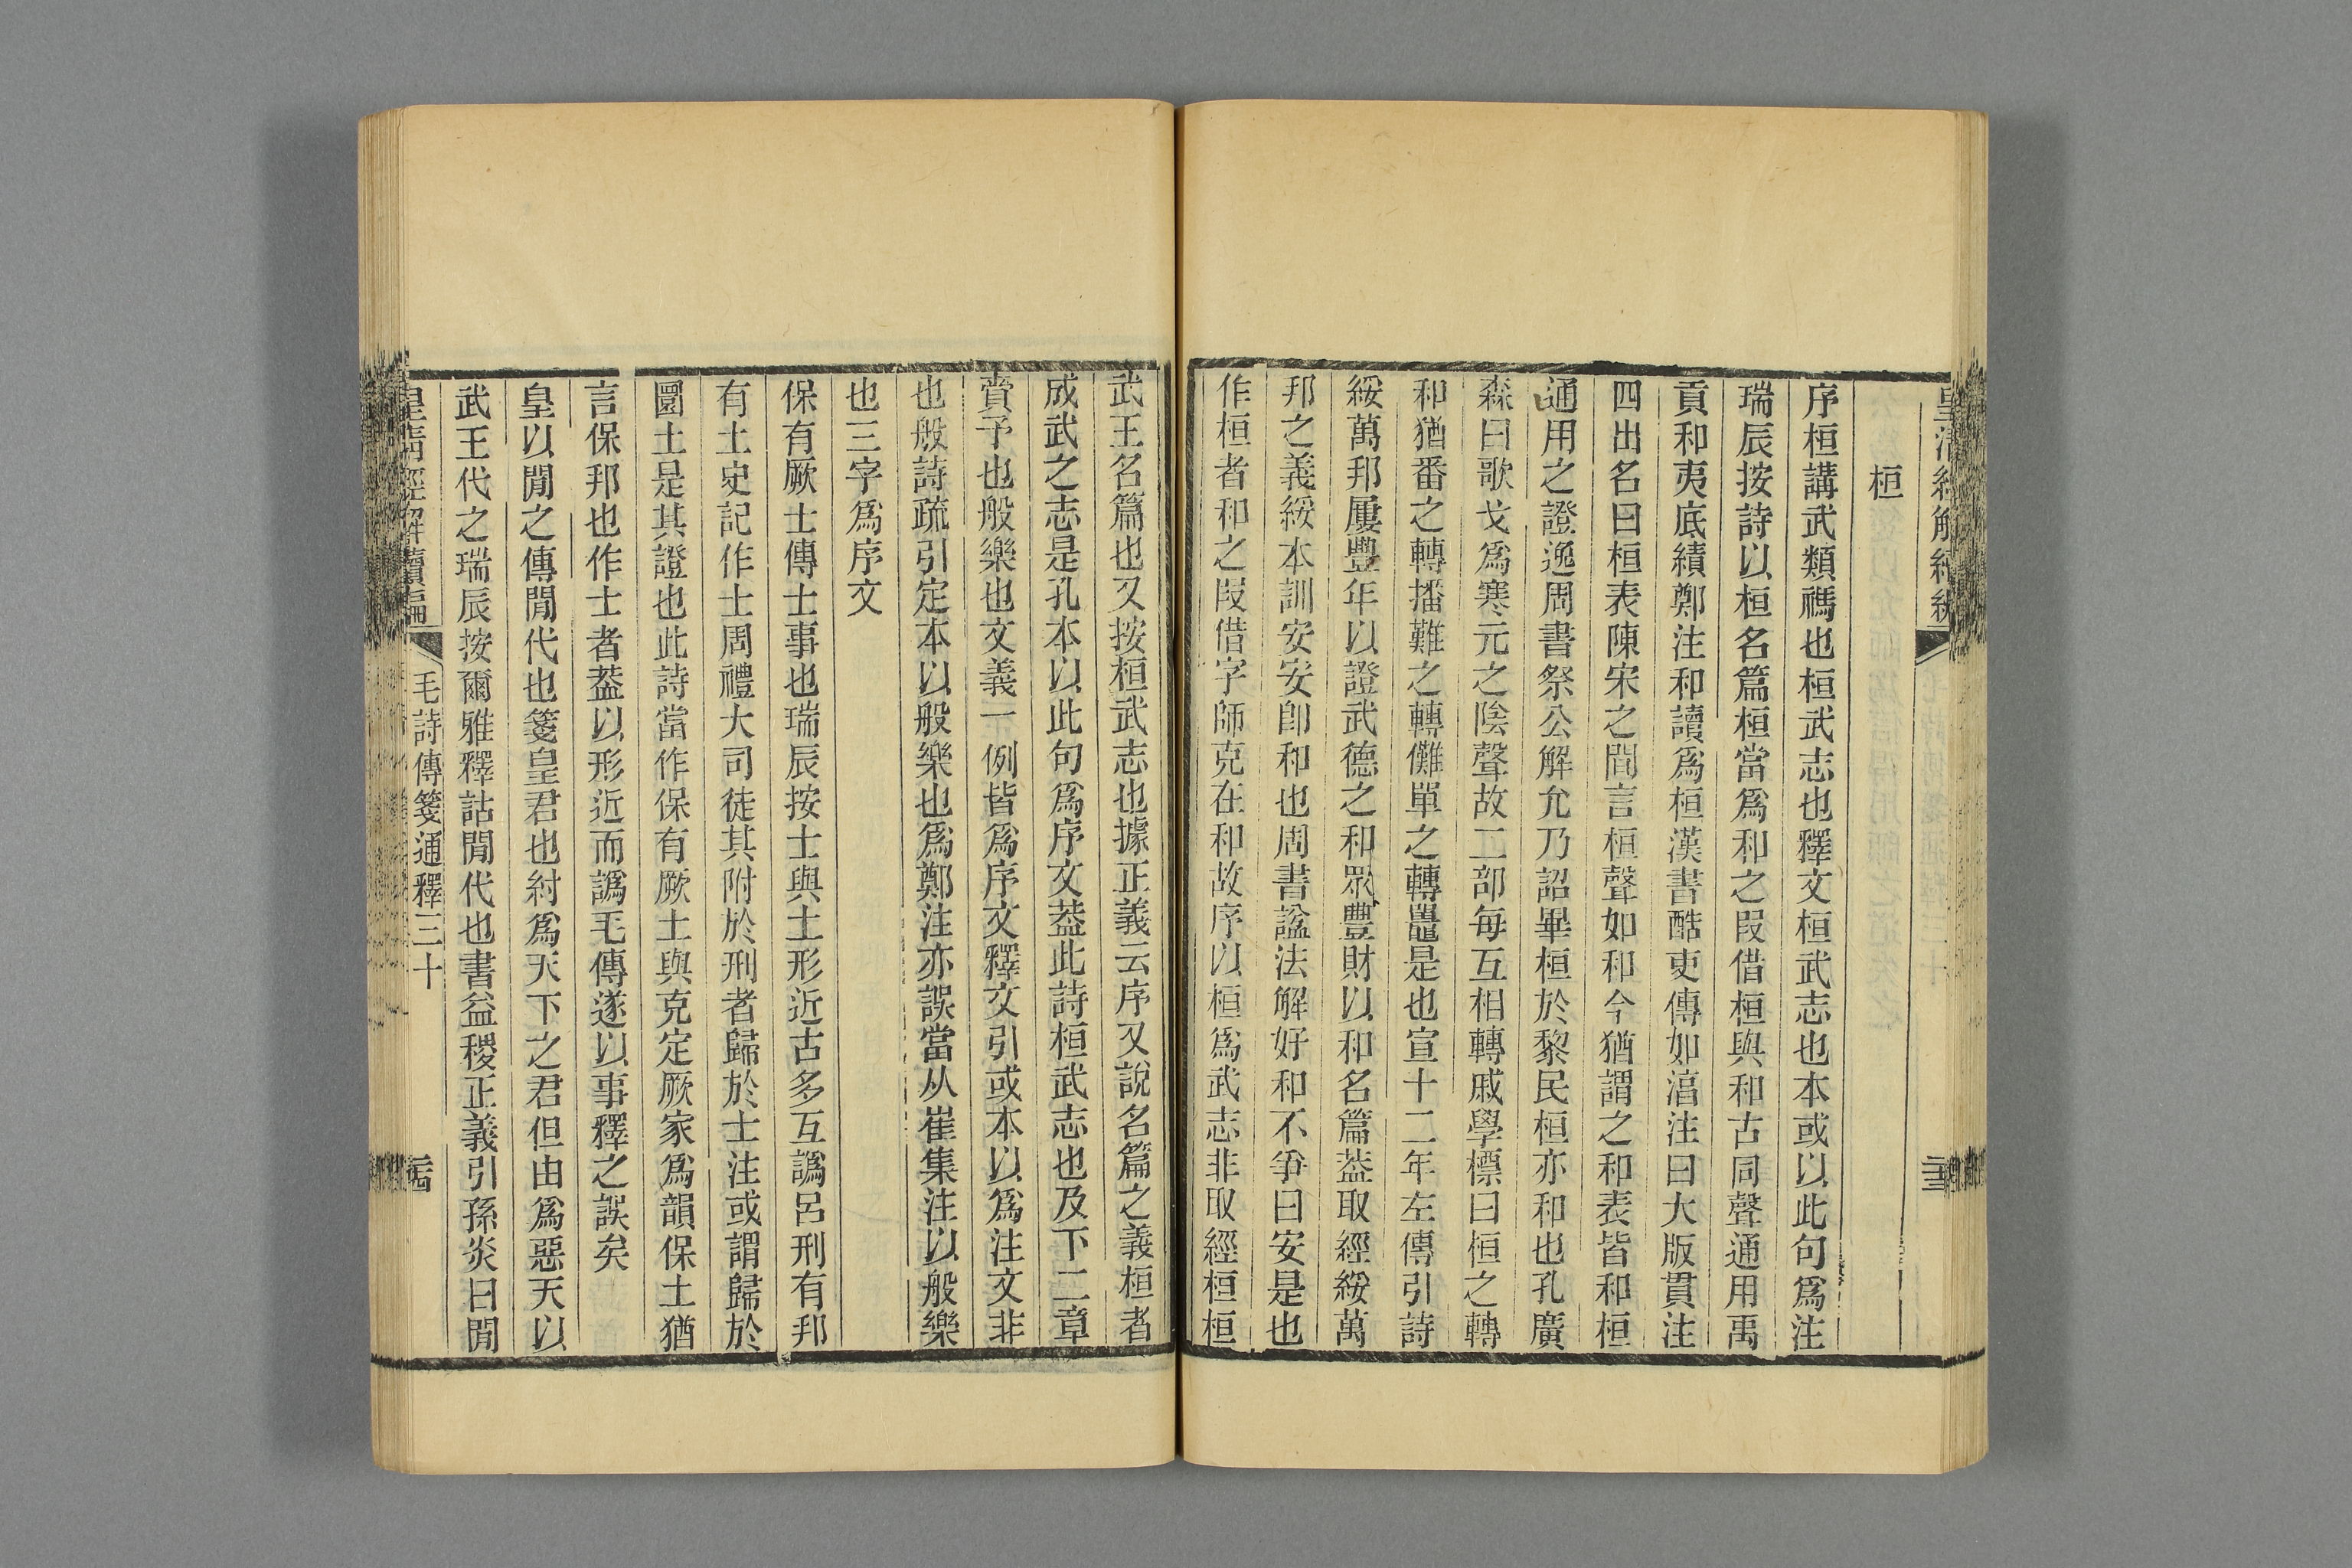 皇清經解續編
桓
序桓講武類禡也桓武志也釋文桓武志也本或以此句爲注
瑞辰按詩以桓名篇桓當爲和之叚借桓與和古同聲通用禹
貢和夷底績鄭注和讀爲桓漢書酷吏傳如淳注曰大版貫注
四出名曰桓表陳宋之間言桓聲如和今猶謂之和表皆和桓
通用之證逸周書祭公解允乃詔畢桓於黎民桓亦和也孔廣
森曰歌戈爲寒元之陰聲故二部每互相轉戚學標曰桓之轉
和猶番之轉播難之轉儺單之轉鼉是也宣十二年左傳引詩
綏萬邦屢豐年以證武德之和眾豐財以和名篇葢取經綏萬
邦之義綏本訓安安卽和也周書諡法解好和不爭曰安是也
作桓者和之叚借字師克在和故序以桓爲武志非取經桓桓
武王名篇也又按桓武志也據正義云序又說名篇之義桓者
成武之志是孔本以此句爲序文葢此詩桓武志也及下二章
賚予也般樂也文義一例皆爲序文釋文引或本以爲注文非
也般詩疏引定本以般樂也爲鄭注亦誤當从崔集注以般樂
也三字爲序文
保有厥士傳士事也瑞辰按士與土形近古多互譌呂刑有邦
有土史記作士周禮大司徒其附於刑者歸於士注或謂歸於
圜土是其證也此詩當作保有厥土與克定厥家爲韻保土猶
言保邦也作士者葢以形近而譌毛傳遂以事釋之誤矣
皇以閒之傳閒代也箋皇君也紂爲天下之君但由爲惡天以
武王代之瑞辰按爾雅釋詁閒代也書益稷正義引孫炎曰閒
皇清經解續編
毛詩傳箋通釋三十